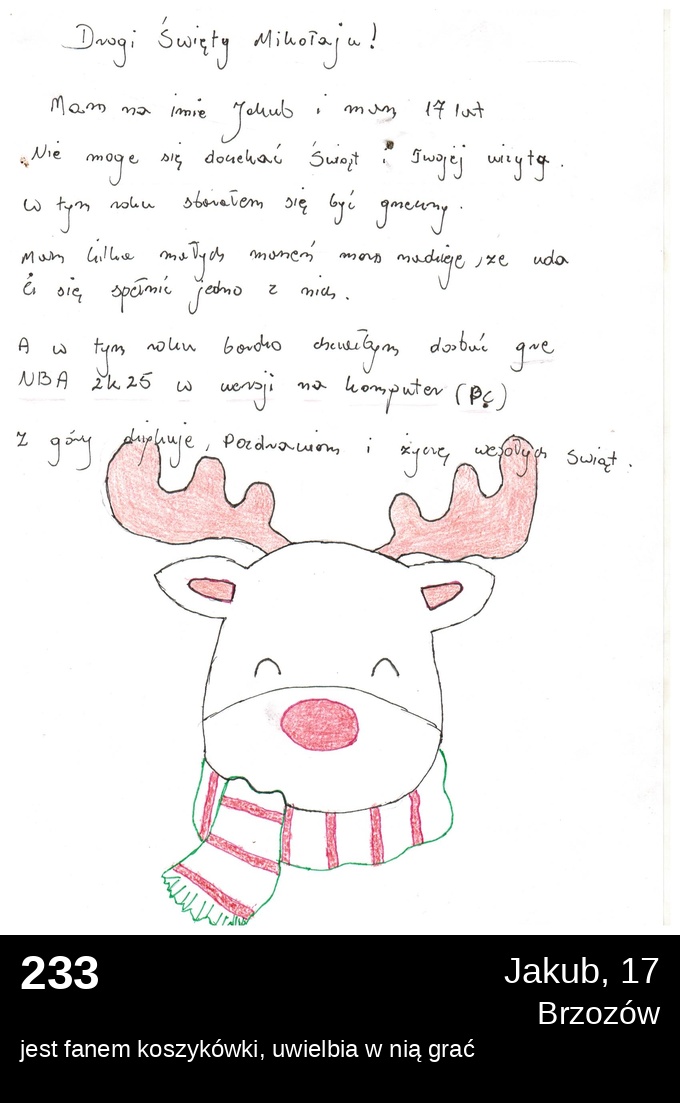 Drogi Święty Mikołaju!
Mam na imie Jakub i mam 17 lat
Nie moge się doczekać Świąt i Twojej wizyty.
W tym roku starałem się być grzeczny.
Mam kilka małych marzeń mam nadzieje, że uda
Ci się spełnić jedno z nich.
A w tym roku bardzo chciałbym dostać gre
NBA 2k25 w wersji na komputer (PC)
Z góry dziękuje, Pozdrawiam i życzę wesołych Świąt.
233
Jakub, 17
Brzozów
jest fanem koszykówki, uwielbia w nią grać